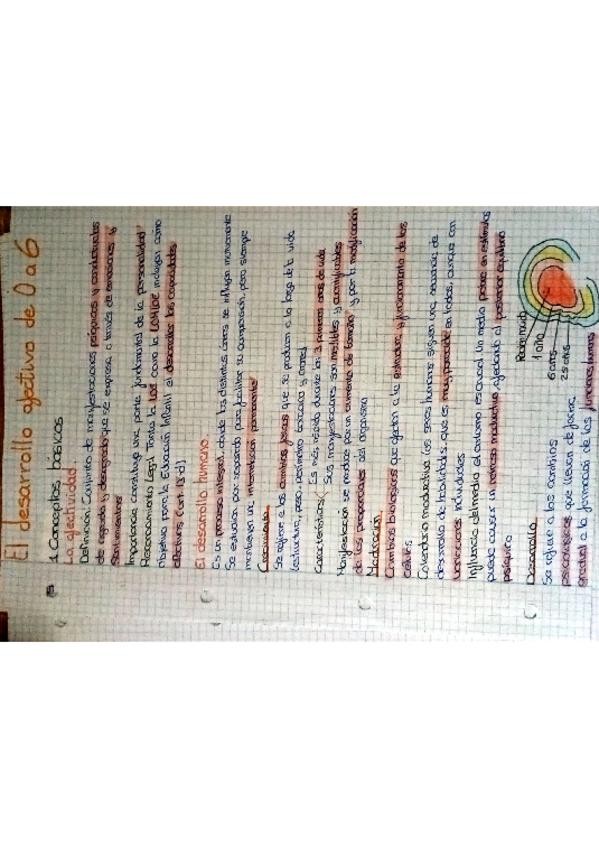 El desarrollo afectivo de 0 a 6
1. Conceptos básicos
La afectividad.
Definición: Conjunto de manifestaciones psíquicas y conductuales
de agrado y desagrado que se expresa a través de emociones y
sentimientos
Importancia: constituye una parte fundamental de la personalidad
Reconocimiento Legal: Tanto la LOE como la LOMLOE incluyen como
objetivo para la Educación Infantil el desarrollar las capacidades
afectivas (art. 13 d)
El desarrollo humano.
Es un proceso integral, donde las distintas áreas se influyen mutuamente
Se estudian por separado para facilitar su comprensión, pero siempre
mantienen una interrelación permanente
Crecimiento.
Se refiere a los cambios físicos que se producen a lo largo de la vida
(estructura, peso, perímetro torácico y craneal)
Características: Es más rápido durante los 3 primeros años de vida
Sus manifestaciones son medibles y cuantificables
Manifestación: se produce por un aumento de tamaño y por la modificación
de las proporciones del organismo
Maduración.
Cambios biológicos que afectan a la estructura y funcionamiento de las
células
Calendario madurativo: los seres humanos siguen una secuencia de
desarrollo de habilidades que es muy parecida en todos, aunque con
variaciones individuales
Influencia del medio: el entorno es crucial. Un medio pobre en estímulos
puede causar un retraso madurativo afectando al posterior equilibrio
psíquico
Desarrollo
Se refiere a los cambios
psicológicos que llevan de forma
gradual a la formación de las funciones humanas
1 año
6 años
25 años